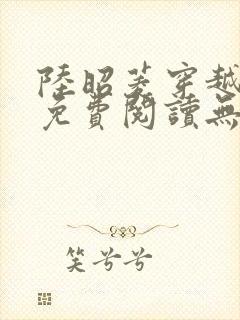 陸昭菱穿越
免費閱讀無
笑兮兮